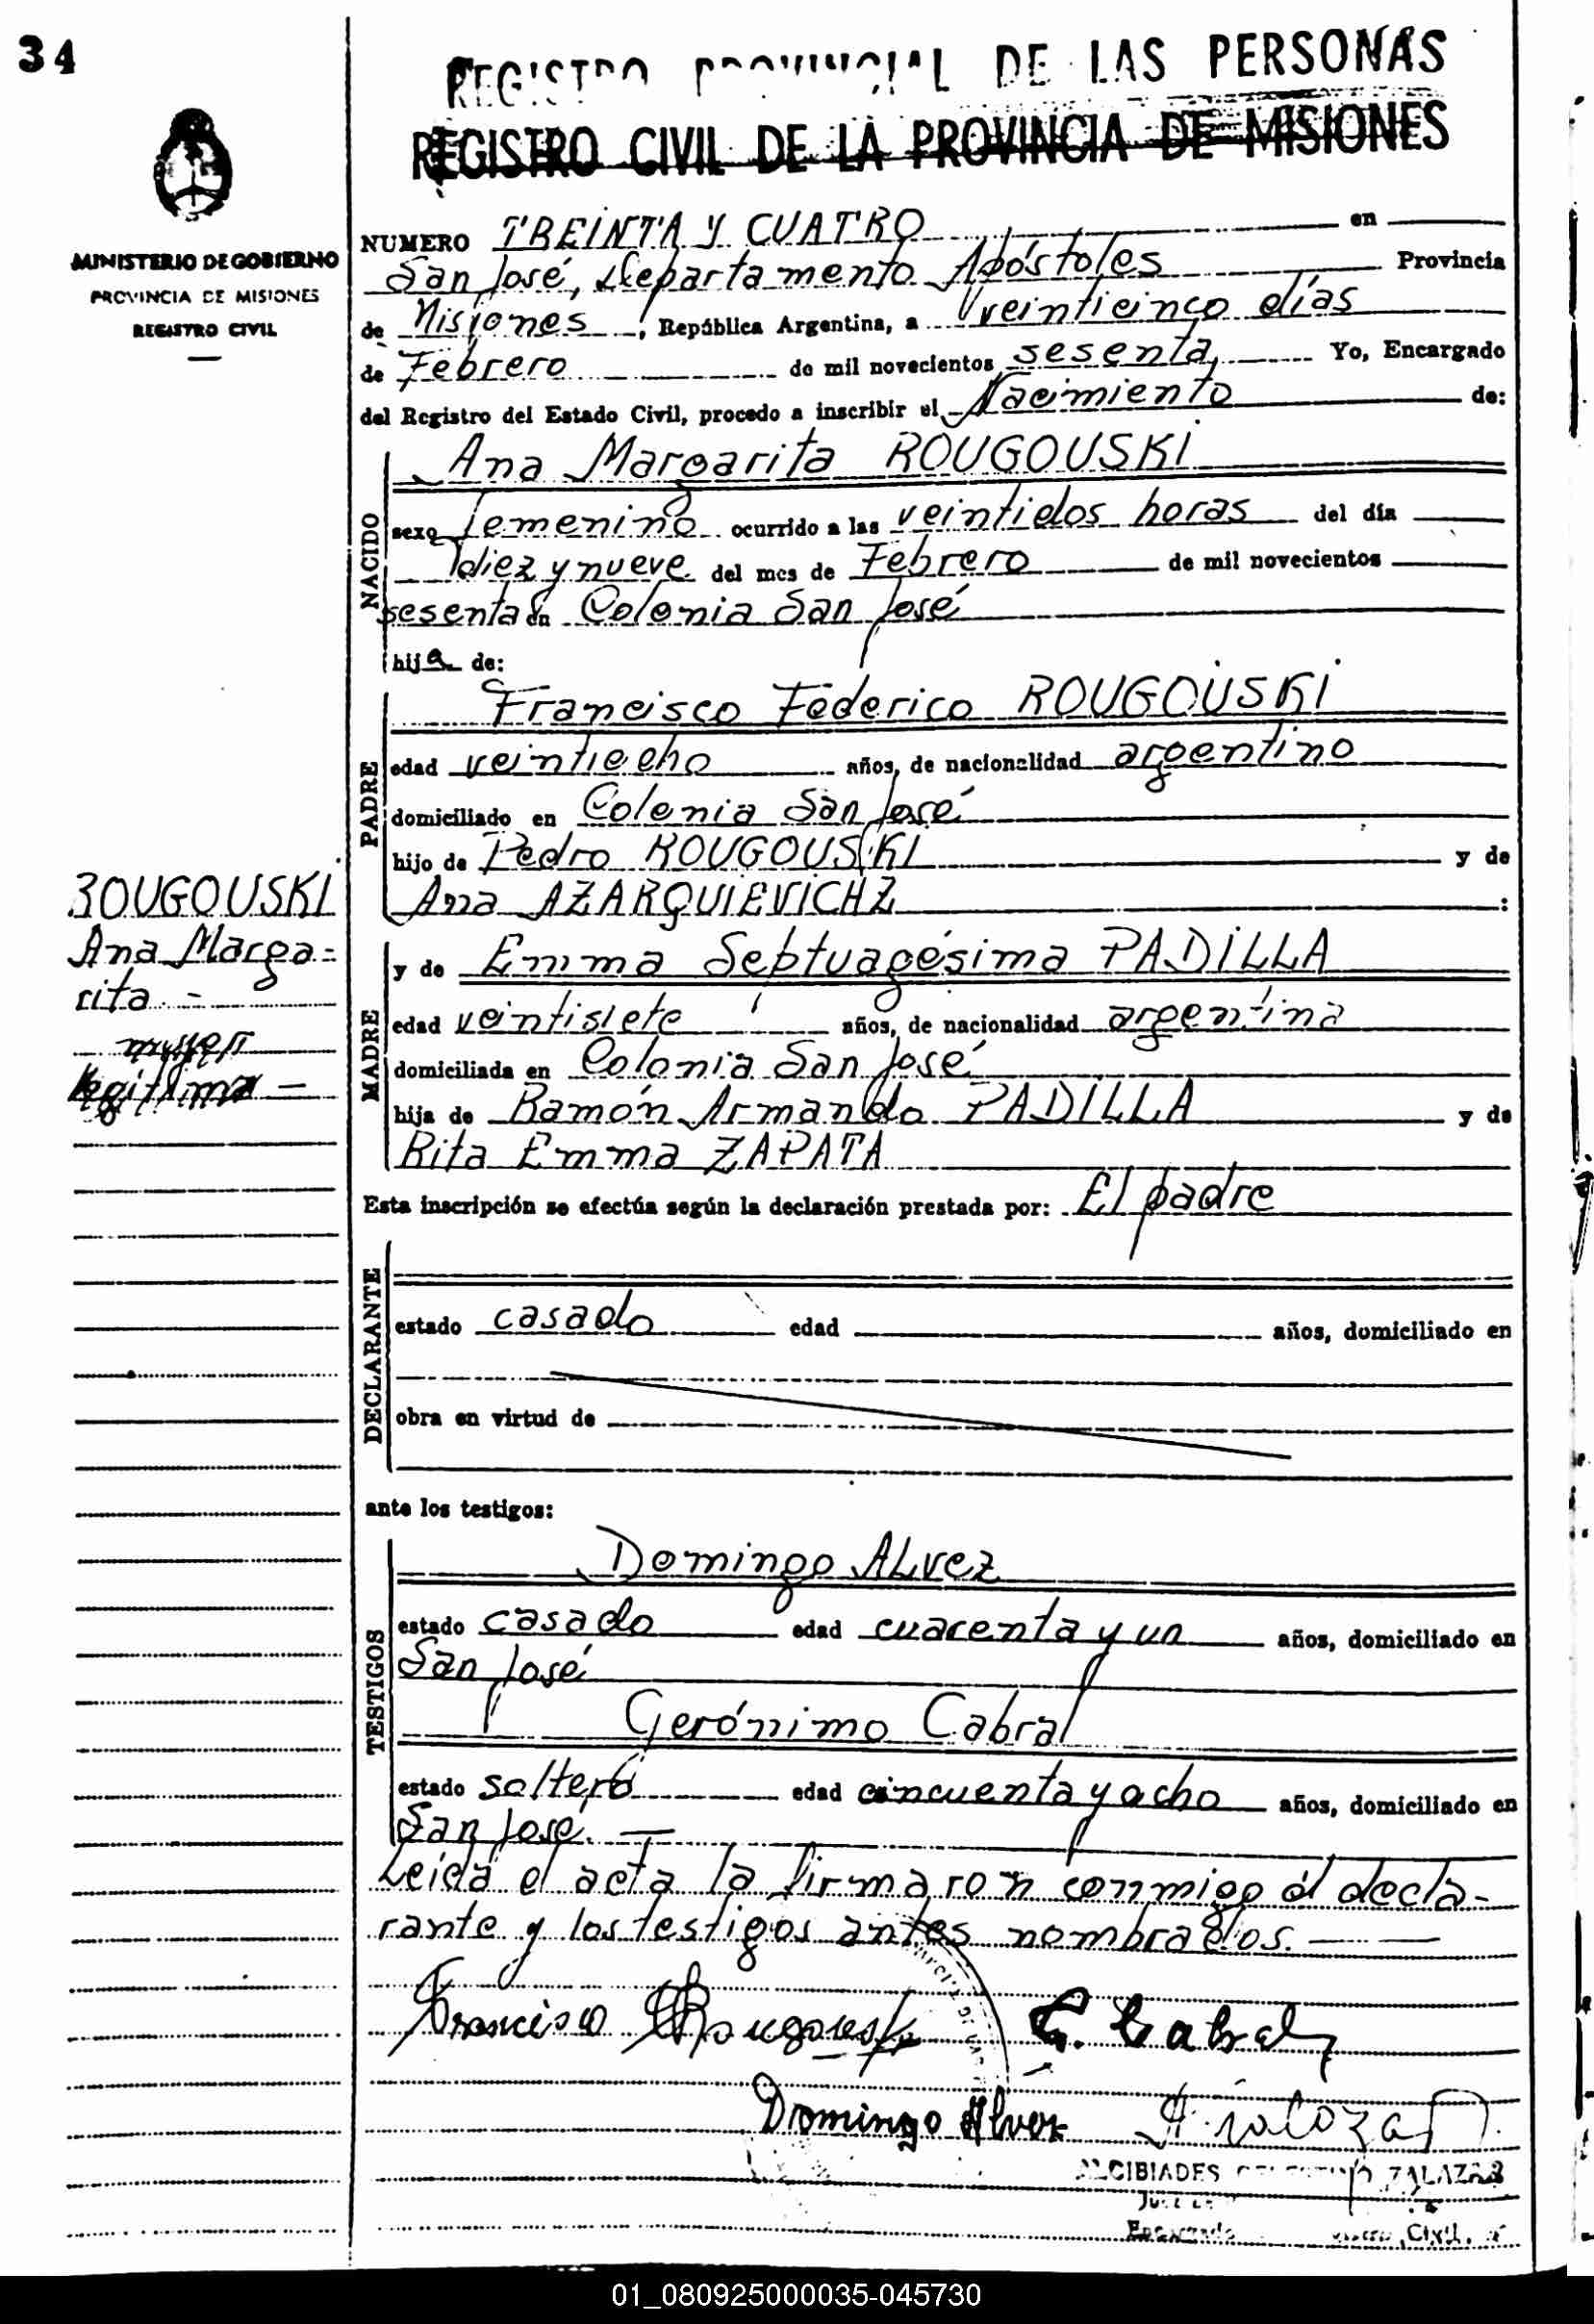 34
REGISTRO PROVINCIAL DE LAS PERSONAS
REGISTRO CIVIL DE LA PROVINCIA DE MISIONES
MINISTERIO DE GOBIERNO
PROVINCIA DE MISIONES
REGISTRO CIVIL
NUMERO TREINTA Y CUATRO en
San José, Departamento Apóstoles Provincia
de Misiones, República Argentina, a veinticinco días
de Febrero de mil novecientos sesenta, Yo, Encargado
del Registro del Estado Civil, procedo a inscribir el Nacimiento de:
NACIDO
Ana Margarita ROUGOUSKI
sexo femenino ocurrido a las veintidos horas del día
diez y nueve del mes de Febrero de mil novecientos
sesenta en Colonia San José
hija de:
PADRE
Francisco Federico ROUGOUSKI
edad veintiocho años, de nacionalidad argentino
domiciliado en Colonia San José
hijo de Pedro ROUGOUSKI y de
Ana AZARQUIEVICHZ :
ROUGOUSKI
Ana Marga=
rita.-
mujer
legítima -
MADRE
y de Emma Septuagésima PADILLA
edad veintisiete años, de nacionalidad argentina
domiciliada en Colonia San José
hija de Ramón Armando PADILLA y de
Rita Emma ZAPATA
Esta inscripción se efectúa según la declaración prestada por: El padre
DECLARANTE
estado casado edad años, domiciliado en
obra en virtud de
ante los testigos:
TESTIGOS
Domingo ALvez
estado casado edad cuarenta y un años, domiciliado en
San José
Gerónimo Cabral
estado soltero edad cincuenta y ocho años, domiciliado en
San Jose. —
Leída el acta la firmaron conmigo el decla-
rante y los testigos antes nombrados. —
Francisco Rougouski G. Cabral
Domingo Alvez A. Zalazar
ALCIBIADES ZALAZAR
Encargado Civil.
01_080925000035-045730